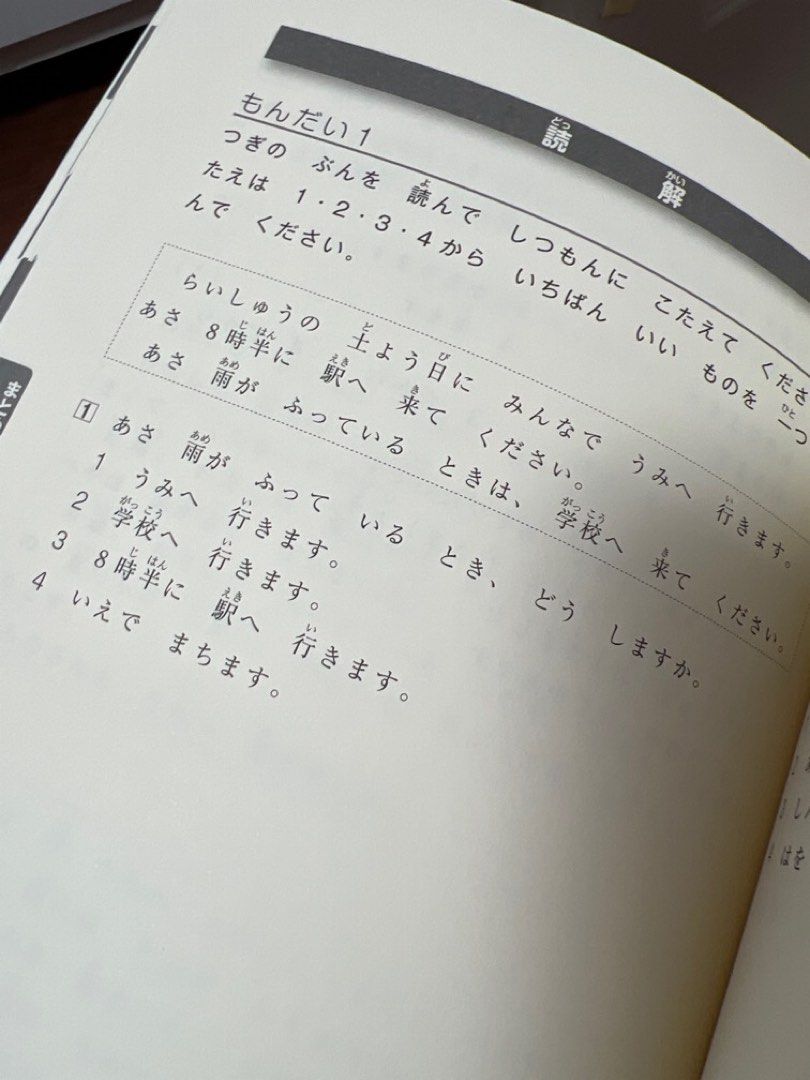 読解
もんだい1
つぎの ぶんを 読んで しつもんに こたえて くださ
たえは 1・2・3・4から いちばん いい ものを 一つ
んで ください。
らいしゅうの 土よう日に みんなで うみへ 行きます。
あさ 8時半に 駅へ 来て ください。
あさ 雨が ふっている ときは、 学校へ 来て ください。
1 あさ 雨が ふって いる とき、 どう しますか。
1 うみへ 行きます。
2 学校へ 行きます。
3 8時半に 駅へ 行きます。
4 いえで まちます。
まと
はを